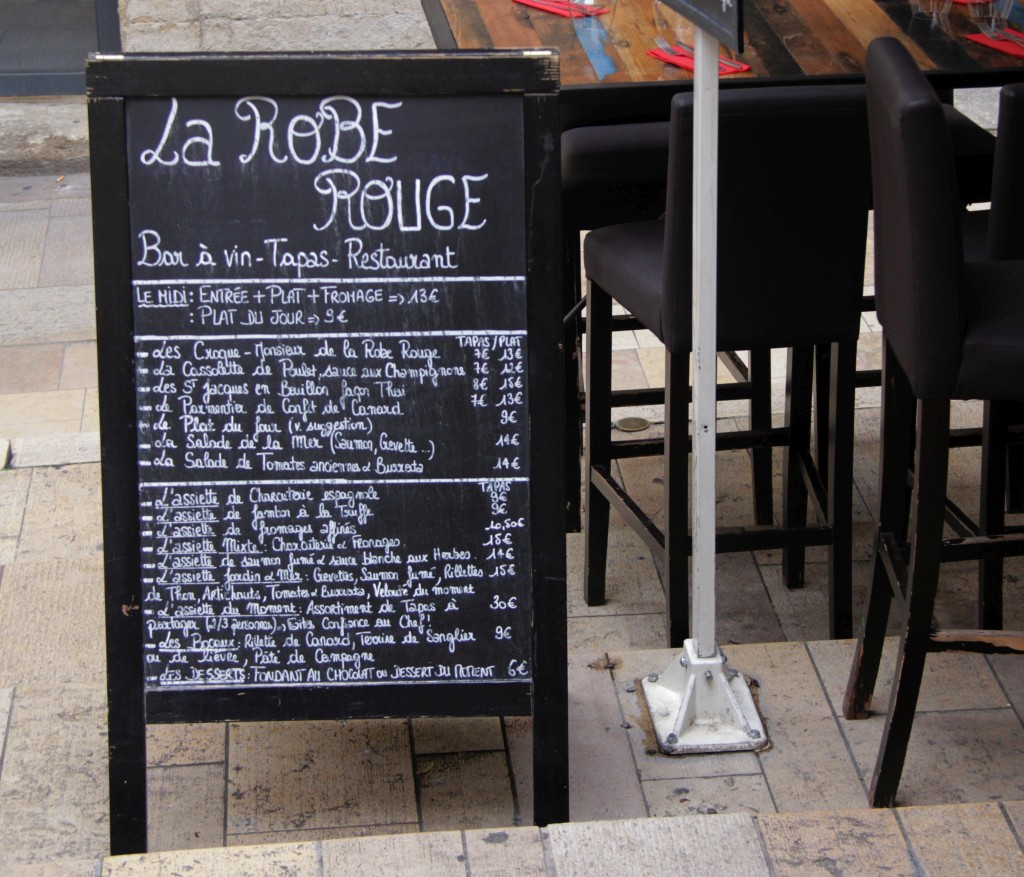 La ROBE
ROUGE
Bar à vin - Tapas - Restaurant
LE MIDI : ENTRÉE + PLAT + FROMAGE => 13€
: PLAT DU JOUR => 9€
TAPAS / PLAT
- Les Croque-Monsieur de la Robe Rouge 7€ 13€
- La Cassolette de Poulet sauce aux Champignons 7€ 12€
- Les St Jacques en Bouillon façon Thaï 8€ 15€
- Le Parmentier de Confit de Canard 7€ 13€
- Le Plat du jour (v. suggestion) 9€
- La Salade de la Mer (Saumon, Gevette...) 14€
- La Salade de Tomates anciennes & Burrata 14€
TAPAS
- L'assiette de Charcuterie espagnole 9€
- L'assiette de Jambon à la Truffe 9€
- L'assiette de fromages affinés 10,50€
- L'assiette Mixte : Charcuterie & Fromages 15€
- L'assiette de saumon fumé & sauce blanche aux Herbes 14€
- L'assiette Jardin & Mer : Crevettes, Saumon fumé, Rillettes 15€
de Thon, Artichauts, Tomates & Burrata, Velouté du moment
- L'assiette du Moment : Assortiment de Tapas à 30€
partager (2/3 personnes), Faites Confiance au Chef!
- Les Bocaux : Rillette de Canard, Terrine de Sanglier 9€
ou de Lièvre, Pâté de Campagne
- LES DESSERTS : FONDANT AU CHOCOLAT ou DESSERT DU MOMENT 6€